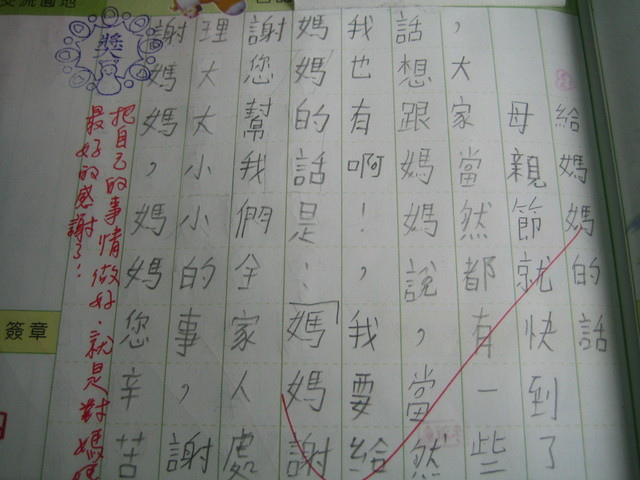 給媽媽的話
母親節就快到了
，大家當然都有一些
話想跟媽媽說，當然
我也有啊！，我要給
媽媽的話是：「媽媽謝
謝您幫我們全家人處
理大大小小的事，謝
謝媽媽，媽媽您辛苦
獎
把自己的事情做好，就是對媽媽
最好的感謝了！
簽章